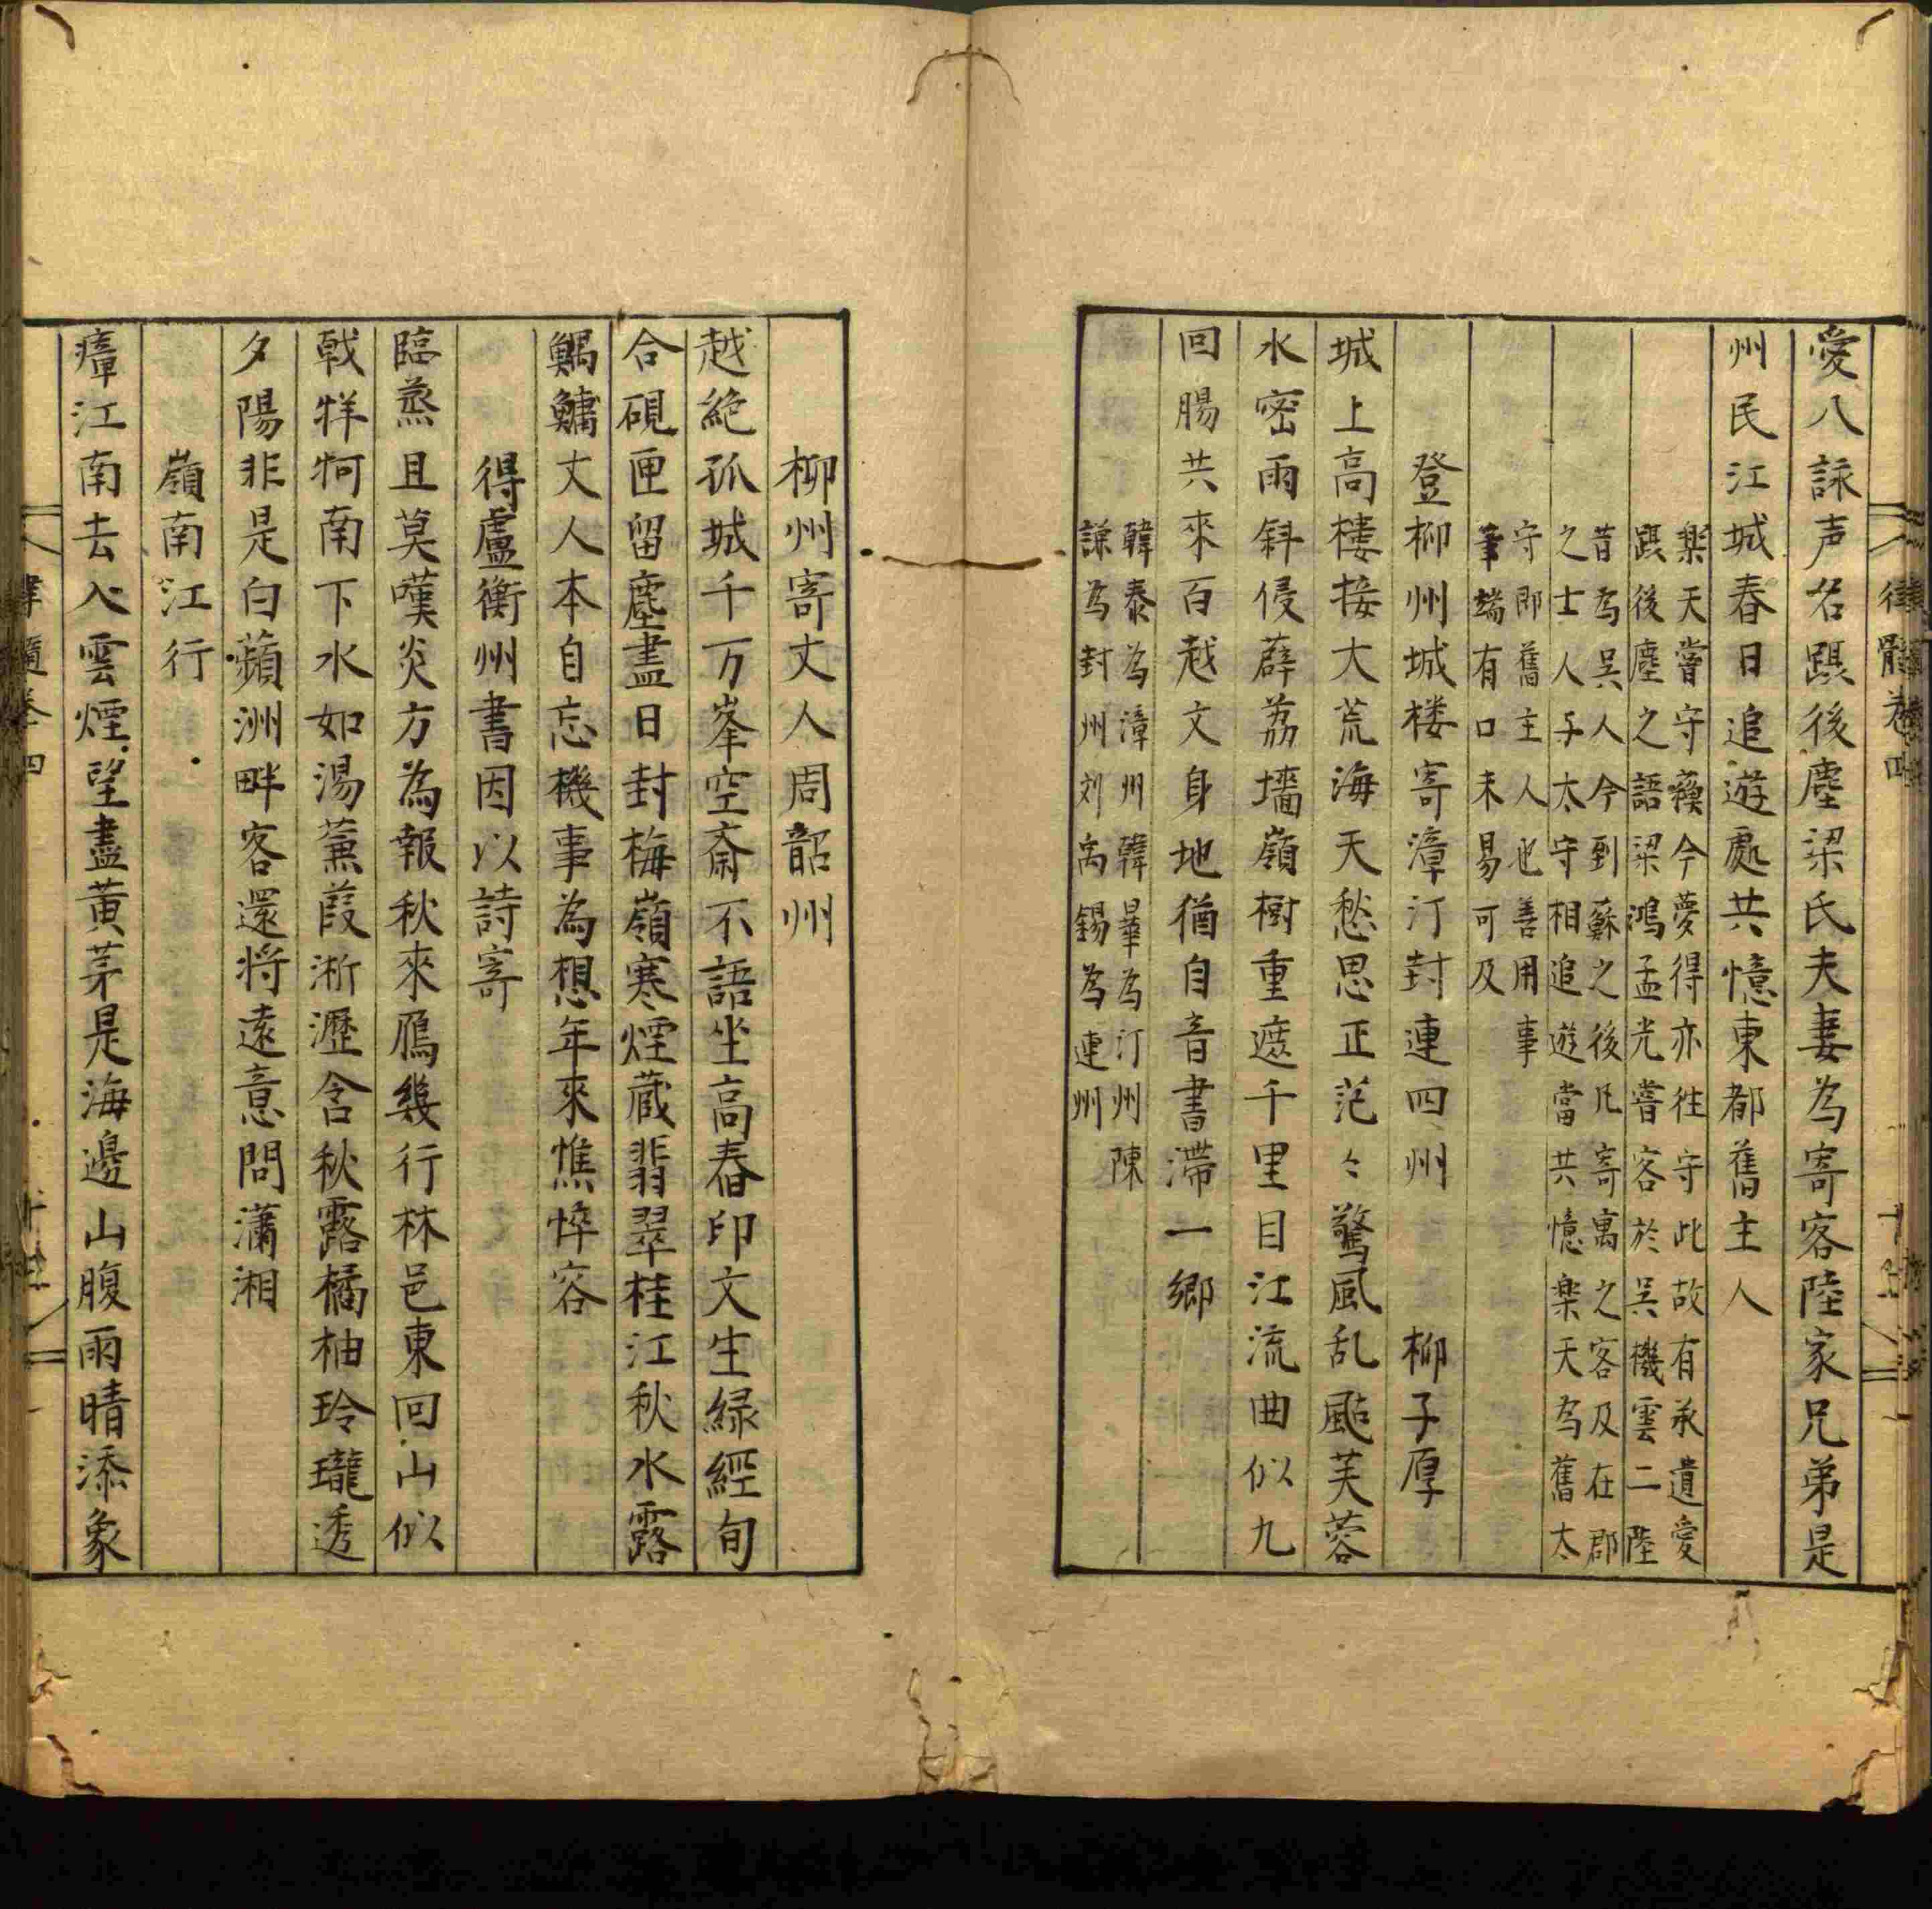 愛八詠声名踶後塵梁氏夫妻為寄客陸家兄弟是
州民江城春日追遊處共憶東都舊主人
楽天嘗守蘓今夢得亦往守此故有承遺愛
踶後塵之語梁鴻孟光嘗客於吴機雲二陸
昔為吴人今到蘇之後凡寄寓之客及在郡
之士人子太守相追遊當共憶楽天為舊太
守即舊主人也善用事
筆端有口未易可及
登柳州城楼寄漳汀封連四州 柳子厚
城上高樓接大荒海天愁思正茫〻驚風乱颭芙蓉
水密雨斜侵薜荔墻嶺樹重遮千里目江流曲似九
回腸共來百越文身地猶自音書滯一鄉
韓泰為漳州韓曅為汀州陳
諌為封州刘禹錫為連州
柳州寄丈人周韶州
越絶孤城千万峯空斎不語坐高舂印文生緑經旬
合硯匣留塵盡日封梅嶺寒煙蔵翡翠桂江秋水露
鰅鱅丈人本自忘機事為想年來憔悴容
得盧衡州書因以詩寄
臨蒸且莫嘆炎方為報秋來鴈幾行林邑東回山似
戟牂牁南下水如湯蒹葭淅瀝含秋露橘柚玲瓏透
夕陽非是白蘋洲畔客還将遠意問瀟湘
嶺南江行
瘴江南去入雲煙望盡黄茅是海邊山腹雨晴添象